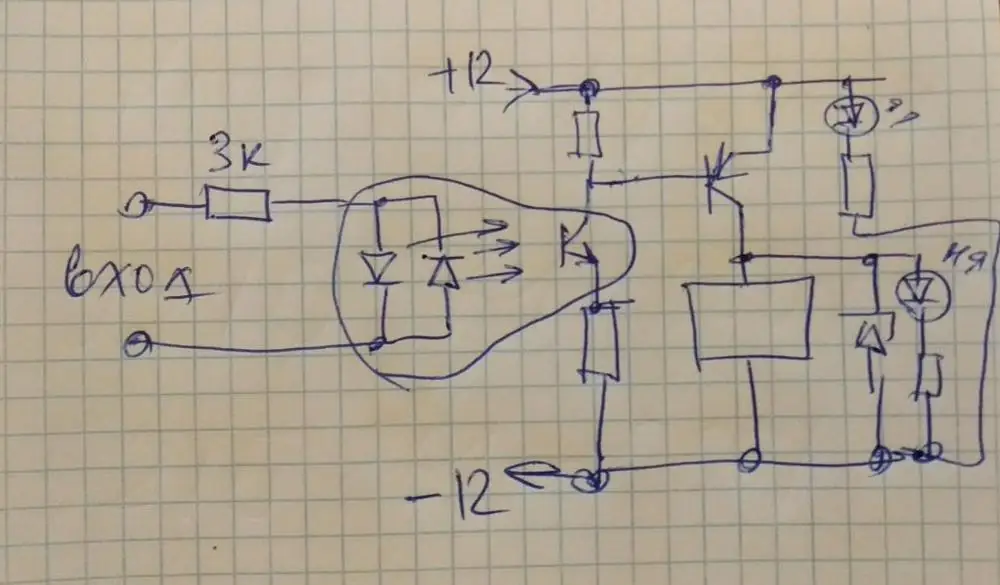 +12
3к
вход
-12